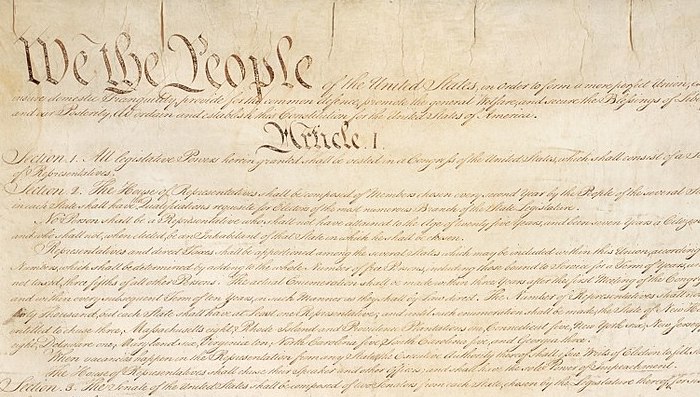 We the People of the United States, in Order to form a more perfect Union,
insure domestic Tranquility, provide for the common defence, promote the general Welfare, and secure the Blessings of
and our Posterity, do ordain and establish this Constitution for the United States of America.
Article. I.
Section. 1. All legislative Powers herein granted shall be vested in a Congress of the United States, which shall consist of a
of Representatives.
Section. 2. The House of Representatives shall be composed of Members chosen every second Year by the People of the several
in each State shall have Qualifications requisite for Electors of the most numerous Branch of the State Legislature.
No Person shall be a Representative who shall not have attained to the Age of twenty five Years, and been seven Years a Citizen
and who shall not, when elected, be an Inhabitant of that State in which he shall be chosen.
Representatives and direct Taxes shall be apportioned among the several States which may be included within this Union, according
Numbers, which shall be determined by adding to the whole Number of free Persons, including those bound to Service for a Term of Years,
not taxed, three fifths of all other Persons. The actual Enumeration shall be made within three Years after the first Meeting of the
and within every subsequent Term of ten Years, in such Manner as they shall by Law direct. The Number of Representatives shall
thirty Thousand, but each State shall have at Least one Representative; and until such enumeration shall be made, the State of New
entitled to chuse three, Massachusetts eight, Rhode Island and Providence Plantations one, Connecticut five, New York six, New Jersey
eight, Delaware one, Maryland six, Virginia ten, North Carolina five, South Carolina five, and Georgia three.
When vacancies happen in the Representation from any State, the Executive Authority thereof shall issue Writs of Election to fill
The House of Representatives shall chuse their Speaker and other Officers; and shall have the sole Power of Impeachment.
Section. 3. The Senate of the United States shall be composed of two Senators from each State, chosen by the Legislature thereof, for